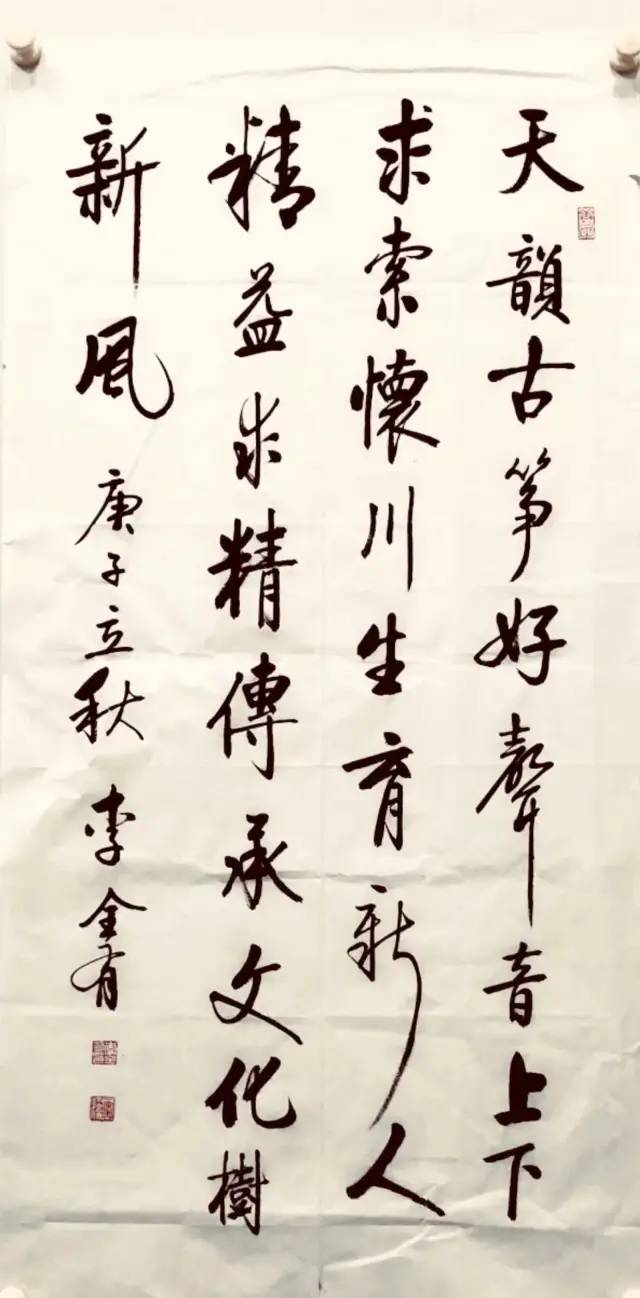 天韻古筝好聲音上下
求索懷川生育新人
精益求精傳承文化樹
新風
庚子立秋 李全有